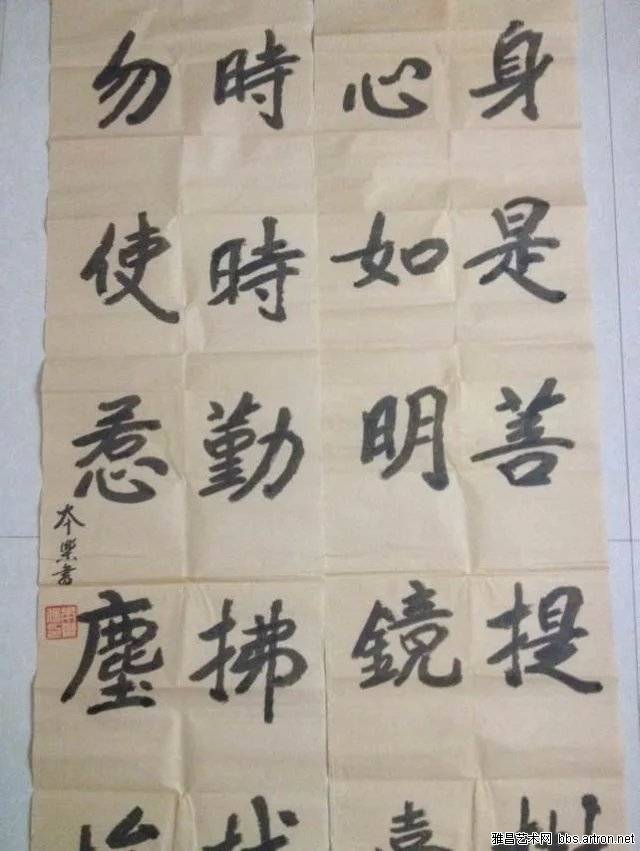 身是善提
心如明鏡
時時勤拂
勿使惹塵
本樂書
雅昌艺术网 bbs.artron.net